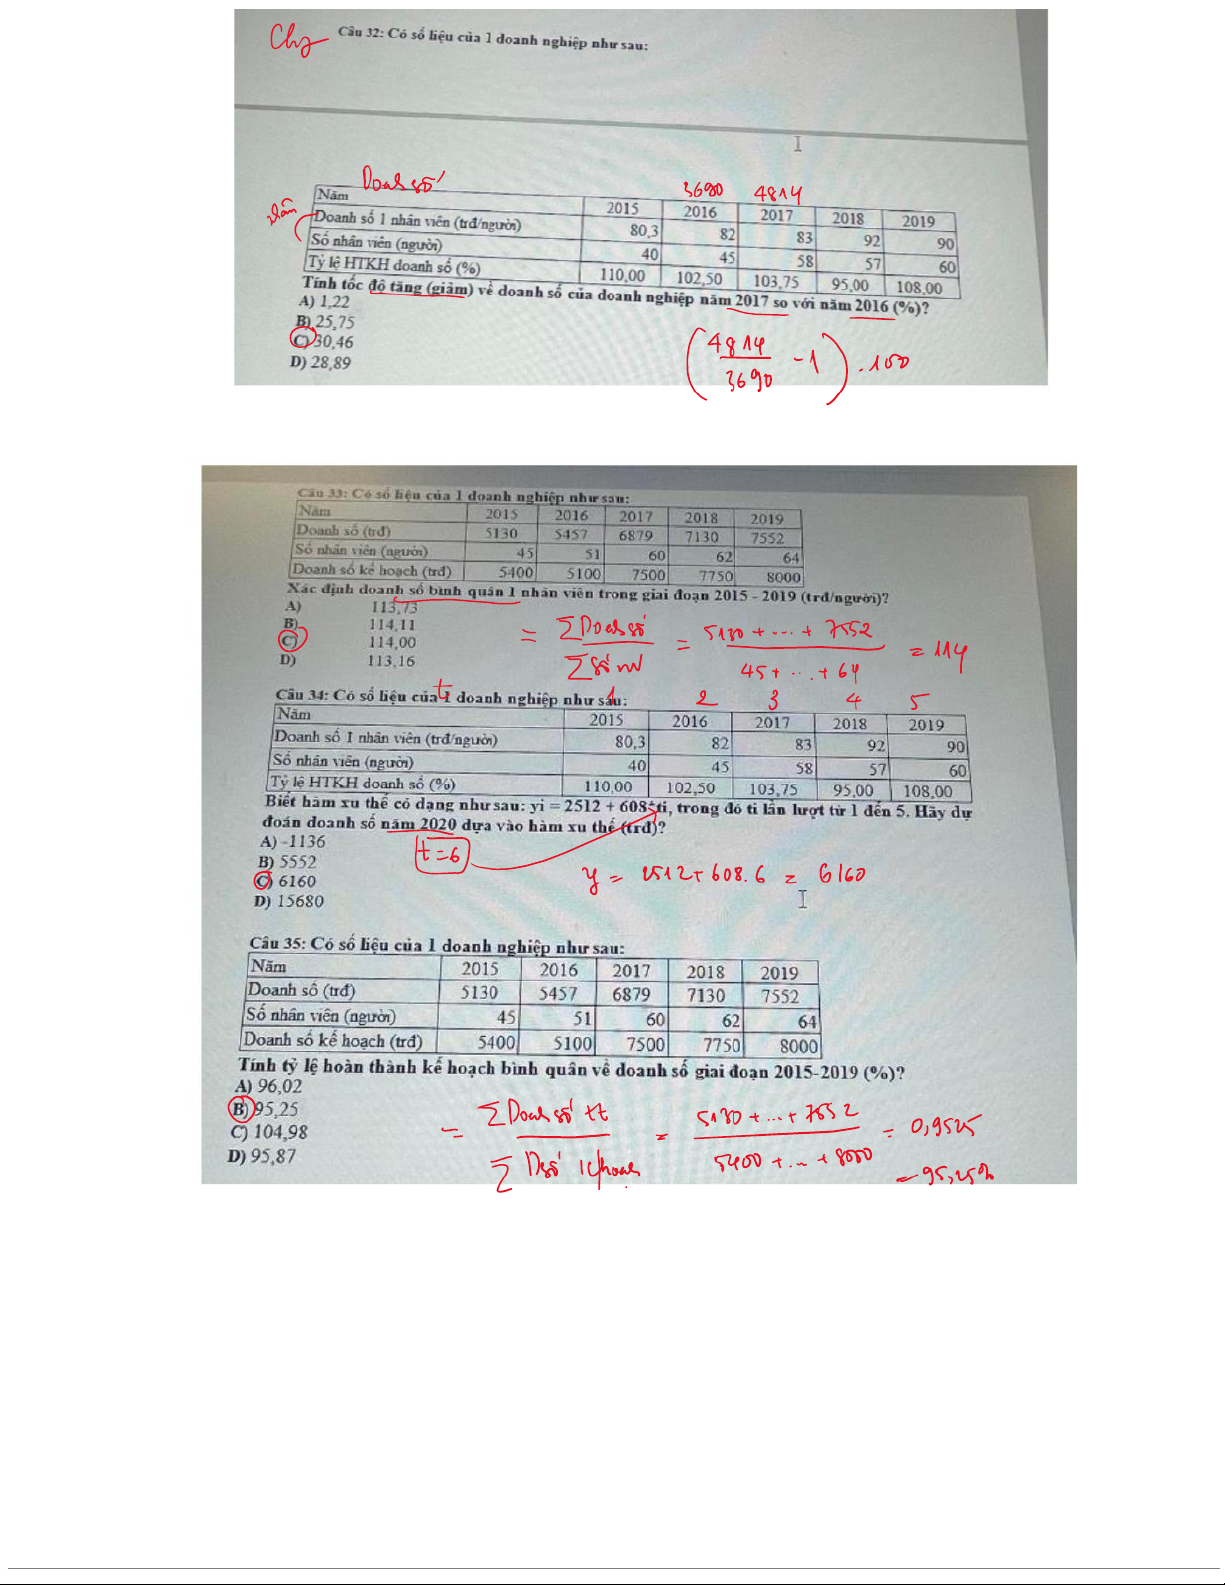 Câu 32: Có số liệu của 1 doanh nghiệp như sau:
Doanh số
3690 4814
Năm 2015 2016 2017 2018 2019
Doanh số 1 nhân viên (trđ/người) 80,3 82 83 92 90
Số nhân viên (người) 40 45 58 57 60
Tỷ lệ HTKH doanh số (%) 110,00 102,50 103,75 95,00 108,00
Tính tốc độ tăng (giảm) về doanh số của doanh nghiệp năm 2017 so với năm 2016 (%)?
A) 1,22
B) 25,75
C) 30,46
D) 28,89
(4814/3690 - 1) . 100
Câu 33: Có số liệu của 1 doanh nghiệp như sau:
Năm 2015 2016 2017 2018 2019
Doanh số (trđ) 5130 5457 6879 7130 7552
Số nhân viên (người) 45 51 60 62 64
Doanh số kế hoạch (trđ) 5400 5100 7500 7750 8000
Xác định doanh số bình quân 1 nhân viên trong giai đoạn 2015 - 2019 (trđ/người)?
A) 113,73
B) 114,11
C) 114,00
D) 113,16
= ΣDoanh số / ΣSố nv = 5130 + ... + 7552 / 45 + ... + 64 = 114
Câu 34: Có số liệu của 1 doanh nghiệp như sau:
t 1 2 3 4 5
Năm 2015 2016 2017 2018 2019
Doanh số 1 nhân viên (trđ/người) 80,3 82 83 92 90
Số nhân viên (người) 40 45 58 57 60
Tỷ lệ HTKH doanh số (%) 110,00 102,50 103,75 95,00 108,00
Biết hàm xu thế có dạng như sau: yi = 2512 + 608*ti, trong đó ti lần lượt từ 1 đến 5. Hãy dự
đoán doanh số năm 2020 dựa vào hàm xu thế (trđ)?
A) -1136
B) 5552
C) 6160
D) 15680
t = 6
y = 2512 + 608.6 = 6160
Câu 35: Có số liệu của 1 doanh nghiệp như sau:
Năm 2015 2016 2017 2018 2019
Doanh số (trđ) 5130 5457 6879 7130 7552
Số nhân viên (người) 45 51 60 62 64
Doanh số kế hoạch (trđ) 5400 5100 7500 7750 8000
Tính tỷ lệ hoàn thành kế hoạch bình quân về doanh số giai đoạn 2015-2019 (%)?
A) 96,02
B) 95,25
C) 104,98
D) 95,87
= ΣDoanh số tt / ΣDsố khoạch = 5130 + ... + 7552 / 5400 + ... + 8000 = 0,9525
= 95,25%